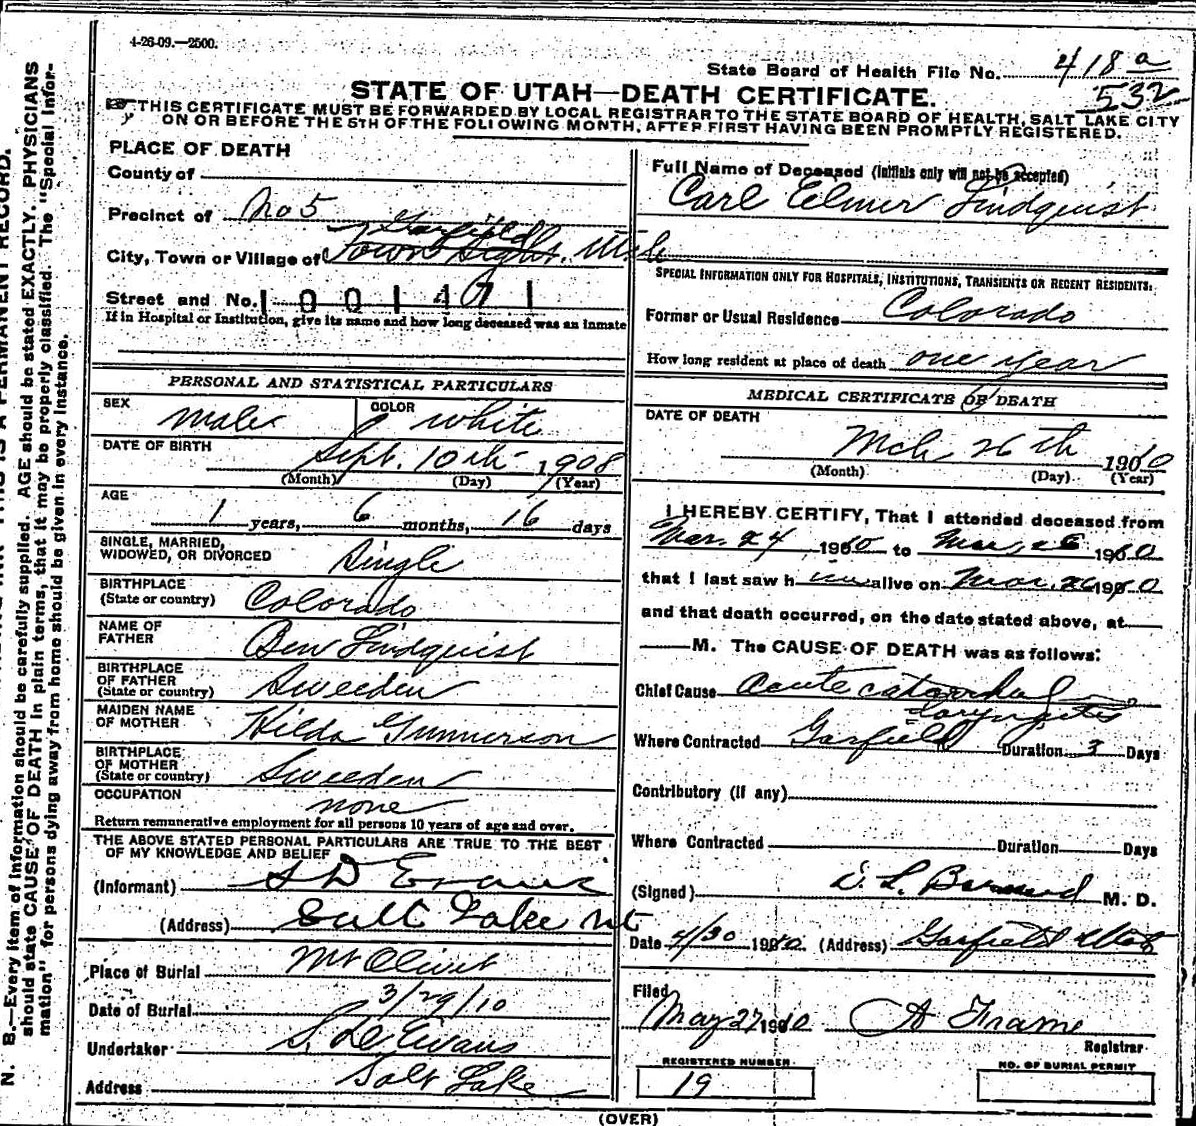 4-26-09.—2500.
State Board of Health File No. 418 a
532
STATE OF UTAH—DEATH CERTIFICATE.
THIS CERTIFICATE MUST BE FORWARDED BY LOCAL REGISTRAR TO THE STATE BOARD OF HEALTH, SALT LAKE CITY
ON OR BEFORE THE 5TH OF THE FOLLOWING MONTH, AFTER FIRST HAVING BEEN PROMPTLY REGISTERED.
PLACE OF DEATH
County of
Precinct of No 5
Garfield
City, Town or Village of Town Sight, Utah
Street and No. 001471
If in Hospital or Institution, give its name and how long deceased was an inmate
PERSONAL AND STATISTICAL PARTICULARS
SEX male COLOR white
DATE OF BIRTH Sept. 10th 1908
(Month) (Day) (Year)
AGE
1 years, 6 months, 16 days
SINGLE, MARRIED,
WIDOWED, OR DIVORCED Single
BIRTHPLACE
(State or country) Colorado
NAME OF
FATHER Ben Lindquist
BIRTHPLACE
OF FATHER
(State or country) Sweeden
MAIDEN NAME
OF MOTHER Hilda Gunnerson
BIRTHPLACE
OF MOTHER
(State or country) Sweeden
OCCUPATION none
Return remunerative employment for all persons 10 years of age and over.
THE ABOVE STATED PERSONAL PARTICULARS ARE TRUE TO THE BEST
OF MY KNOWLEDGE AND BELIEF
(Informant) S D Evans
(Address) Salt Lake Ut
Place of Burial Mt Olivet
Date of Burial 3/29/10
Undertaker S. D. Evans
Address Salt Lake
Full Name of Deceased (Initials only will not be accepted)
Carl Elmer Lindquist
SPECIAL INFORMATION ONLY FOR HOSPITALS, INSTITUTIONS, TRANSIENTS OR RECENT RESIDENTS:
Former or Usual Residence Colorado
How long resident at place of death one year
MEDICAL CERTIFICATE OF DEATH
DATE OF DEATH
Mch 26th 1910
(Month) (Day) (Year)
I HEREBY CERTIFY, That I attended deceased from
Mar. 24 1910 to Mar. 26 1910
that I last saw him alive on Mar. 26 1910
and that death occurred, on the date stated above, at
M. The CAUSE OF DEATH was as follows:
Chief Cause Acute catarrhal
Laryngitis
Where Contracted Garfield Duration 3 Days
Contributory (if any)
Where Contracted Duration Days
(Signed) D. L. Barnard M. D.
Date 4/30 1910. (Address) Garfield Utah
Filed
May 27 1910 A Frame
Registrar
REGISTERED NUMBER
19
NO. OF BURIAL PERMIT
(OVER)
N. B.—Every item of information should be carefully supplied. AGE should be stated EXACTLY. PHYSICIANS
should state CAUSE OF DEATH in plain terms, that it may be properly classified. The "Special Infor-
mation" for persons dying away from home should be given in every instance.